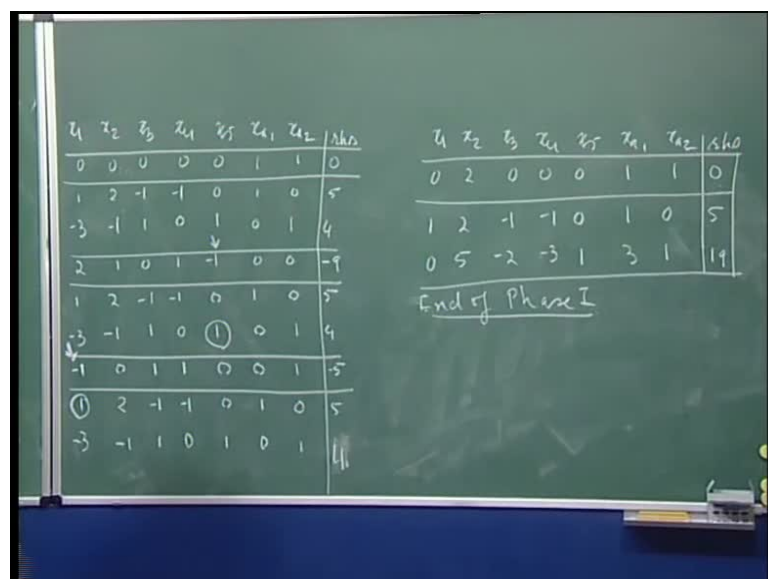 x₁ x₂ x₃ x₄ x₅ xₐ₁ xₐ₂ rhs
0 0 0 0 0 1 1 0
1 2 -1 -1 0 1 0 5
-3 -1 1 0 1 0 1 4
2 -1 0 1 -1 0 0 -9
1 2 -1 -1 0 1 0 5
-3 -1 1 0 1 0 1 4
-1 0 1 1 0 0 1 -5
1 2 -1 -1 0 1 0 5
-3 -1 1 0 1 0 1 4
x₁ x₂ x₃ x₄ x₅ xₐ₁ xₐ₂ rhs
0 2 0 0 0 1 1 0
1 2 -1 -1 0 1 0 5
0 5 -2 -3 1 3 1 19
End of Phase I